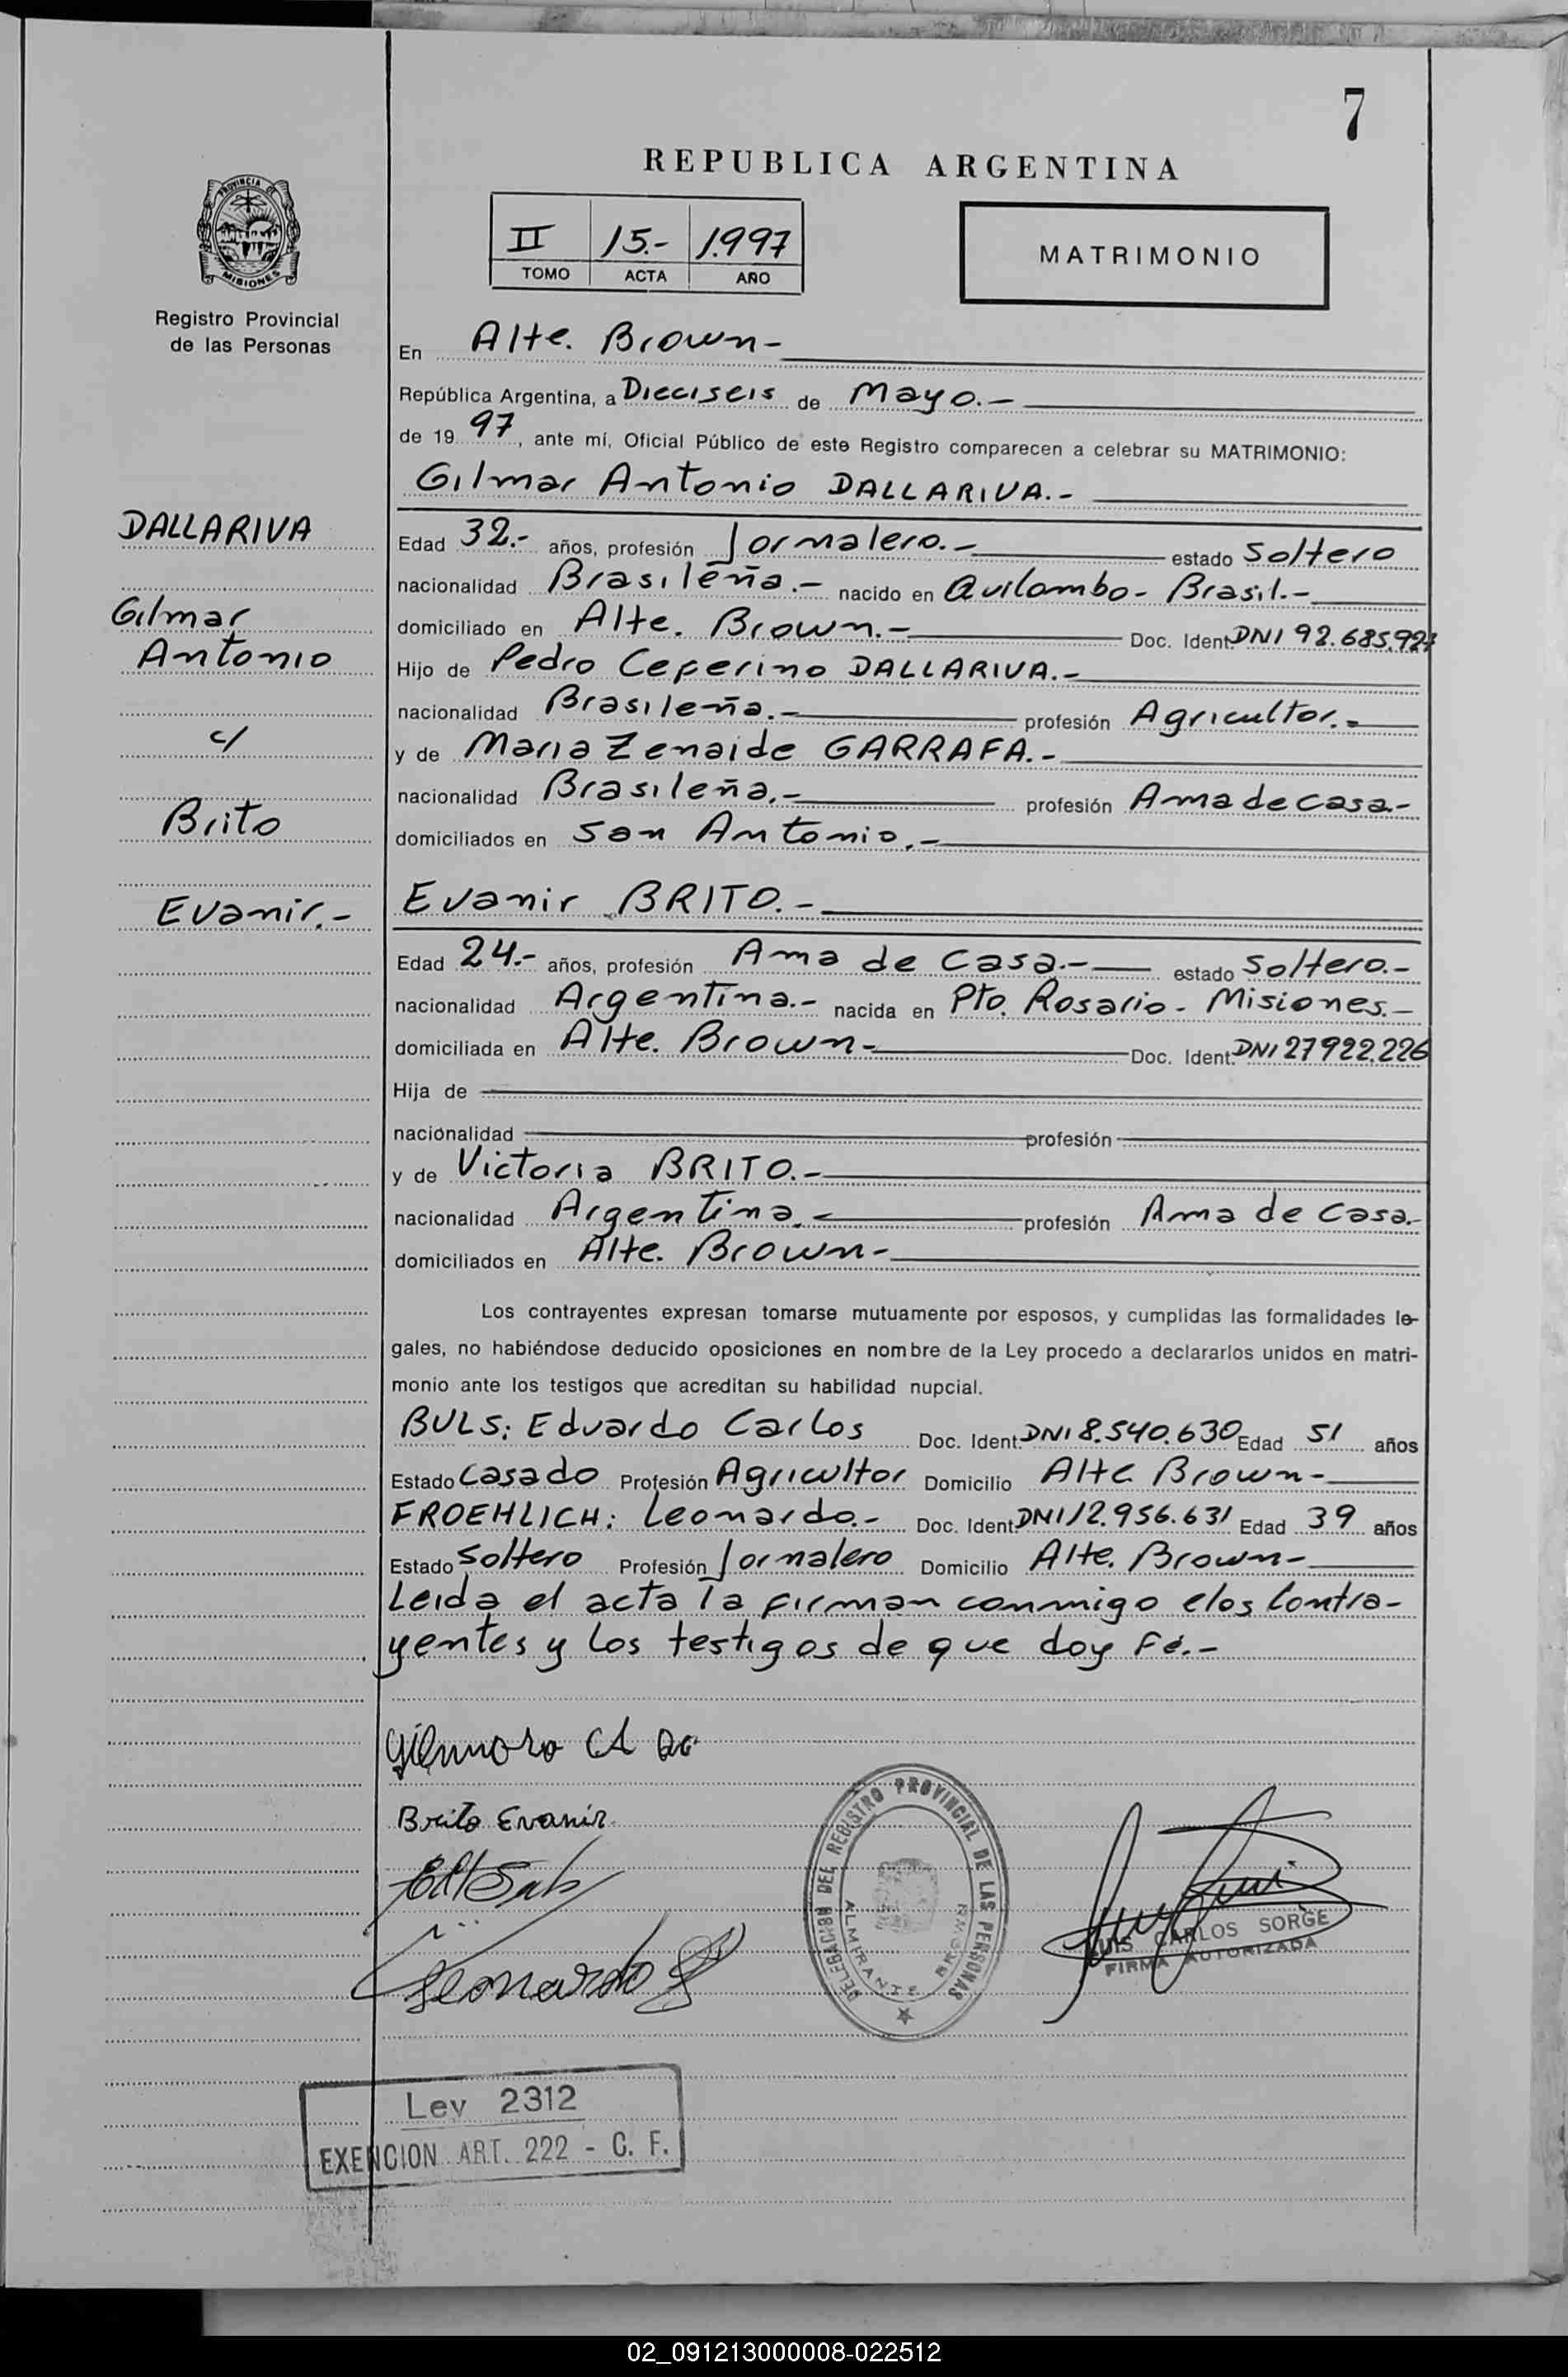 7
REPUBLICA ARGENTINA
PROVINCIA DE
MISIONES
Registro Provincial
de las Personas
II 15.- 1.997
TOMO ACTA AÑO
MATRIMONIO
En Alte. Brown-
República Argentina, a Dieciseis de Mayo.-
de 19 97, ante mí, Oficial Público de este Registro comparecen a celebrar su MATRIMONIO:
Gilmar Antonio DALLARIVA.-
DALLARIVA
Gilmar
Antonio
c/
Brito
Evanir.-
Edad 32.- años, profesión Jornalero.- estado Soltero
nacionalidad Brasileña.- nacido en Quilombo- Brasil.-
domiciliado en Alte. Brown.- Doc. Ident. DNI 92.685.927
Hijo de Pedro Ceferino DALLARIVA.-
nacionalidad Brasileña.- profesión Agricultor.-
y de Maria Zenaide GARRAFA.-
nacionalidad Brasileña.- profesión Ama de casa.-
domiciliados en San Antonio.-
Evanir BRITO.-
Edad 24.- años, profesión Ama de Casa.- estado Soltero.-
nacionalidad Argentina.- nacida en Pto. Rosario- Misiones.-
domiciliada en Alte. Brown- Doc. Ident. DNI 27922.226
Hija de
nacionalidad profesión
y de Victoria BRITO.-
nacionalidad Argentina.- profesión Ama de Casa.-
domiciliados en Alte. Brown-
Los contrayentes expresan tomarse mutuamente por esposos, y cumplidas las formalidades le-
gales, no habiéndose deducido oposiciones en nombre de la Ley procedo a declararlos unidos en matri-
monio ante los testigos que acreditan su habilidad nupcial.
BULS: Eduardo Carlos Doc. Ident. DNI 8.540.630 Edad 51 años
Estado Casado Profesión Agricultor Domicilio Alte Brown-
FROEHLICH: Leonardo.- Doc. Ident. DNI 12.956.631 Edad 39 años
Estado Soltero Profesión Jornalero Domicilio Alte. Brown-
Leida el acta la firman conmigo elos Contra-
yentes y los testigos de que doy Fé.-
Brito Evanir
Leonardo
DELEGACION DEL REGISTRO PROVINCIAL DE LAS PERSONAS
ALMIRANTE BROWN
LUIS CARLOS SORGE
FIRMA AUTORIZADA
Ley 2312
EXENCION ART. 222 - C. F.
02_091213000008-022512